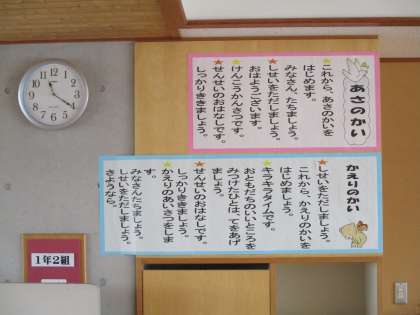 あさのかい
★これから、あさのかいを
はじめます。
みなさん、たちましょう。
★しせいをただしましょう。
おはようございます。
★けんこうかんさつです。
★せんせいのおはなしです。
しっかりききましょう。
かえりのかい
★しせいをただしましょう。
これから、かえりのかいを
はじめましょう。
★キラキラタイムです。
おともだちのいいところを
みつけたひとは、てをあげ
ましょう。
★せんせいのおはなしです。
しっかりききましょう。
★かえりのあいさつをしま
す。
みなさんたちましょう。
しせいをただしましょう。
さようなら。
1年2組